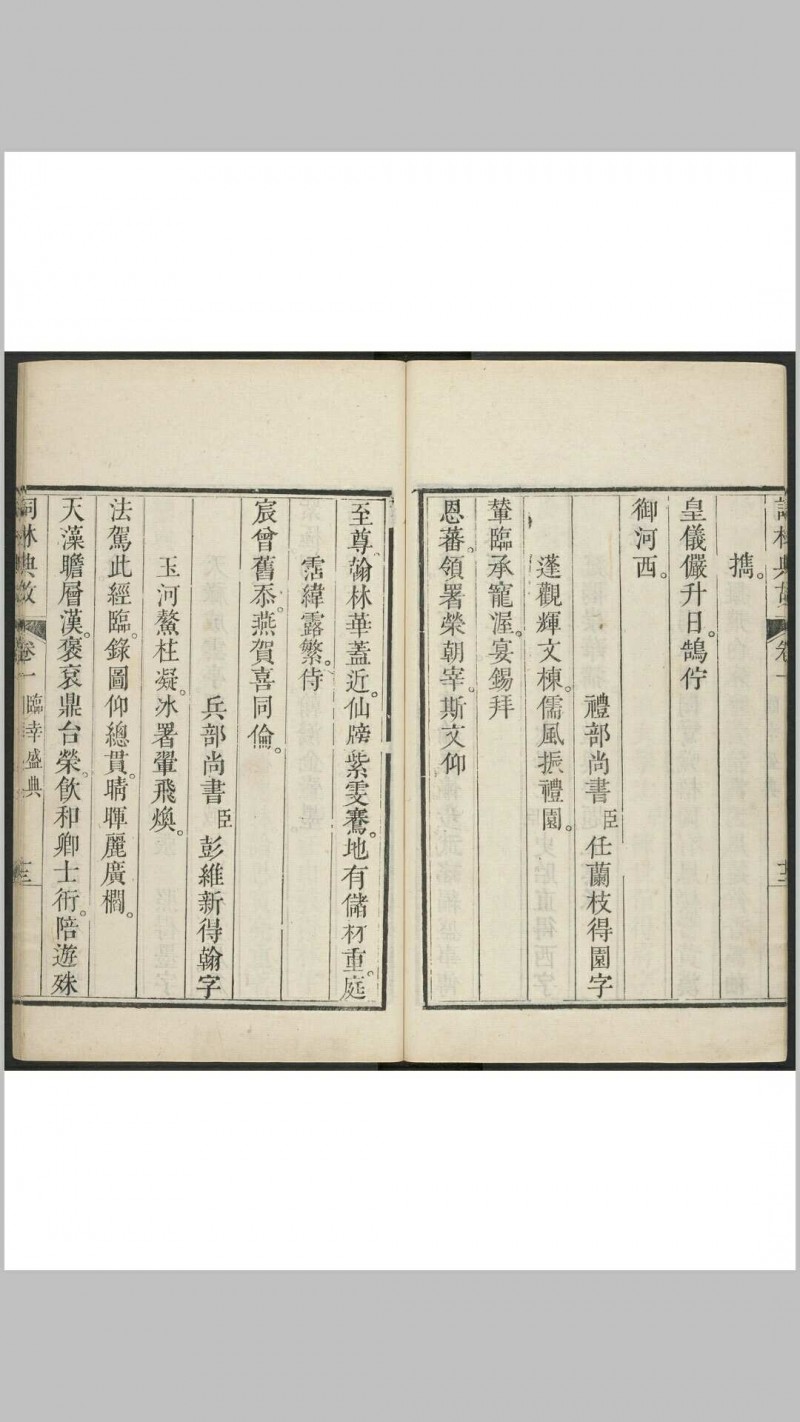 擕。
皇儀儼升日。鵠佇
御河西。
禮部尚書臣任蘭枝得園字
蓬觀輝文棟。儒風振禮園。
輦臨承寵渥。宴錫拜
恩蕃。領署榮朝宰。斯文仰
至尊。翰林華蓋近。仙牓紫雯騫。地有儲材重。庭
霑緯露繁。侍
宸曾舊忝。燕賀喜同倫。
兵部尚書臣彭維新得翰字
玉河鰲柱凝。冰署翬飛煥。
法駕此經臨。錄圖仰總貫。晴暉麗廣櫩。
天藻瞻層漢。褒衮鼎台榮。飲和卿士衎。陪遊殊
詞林典故 卷一 臨幸盛典